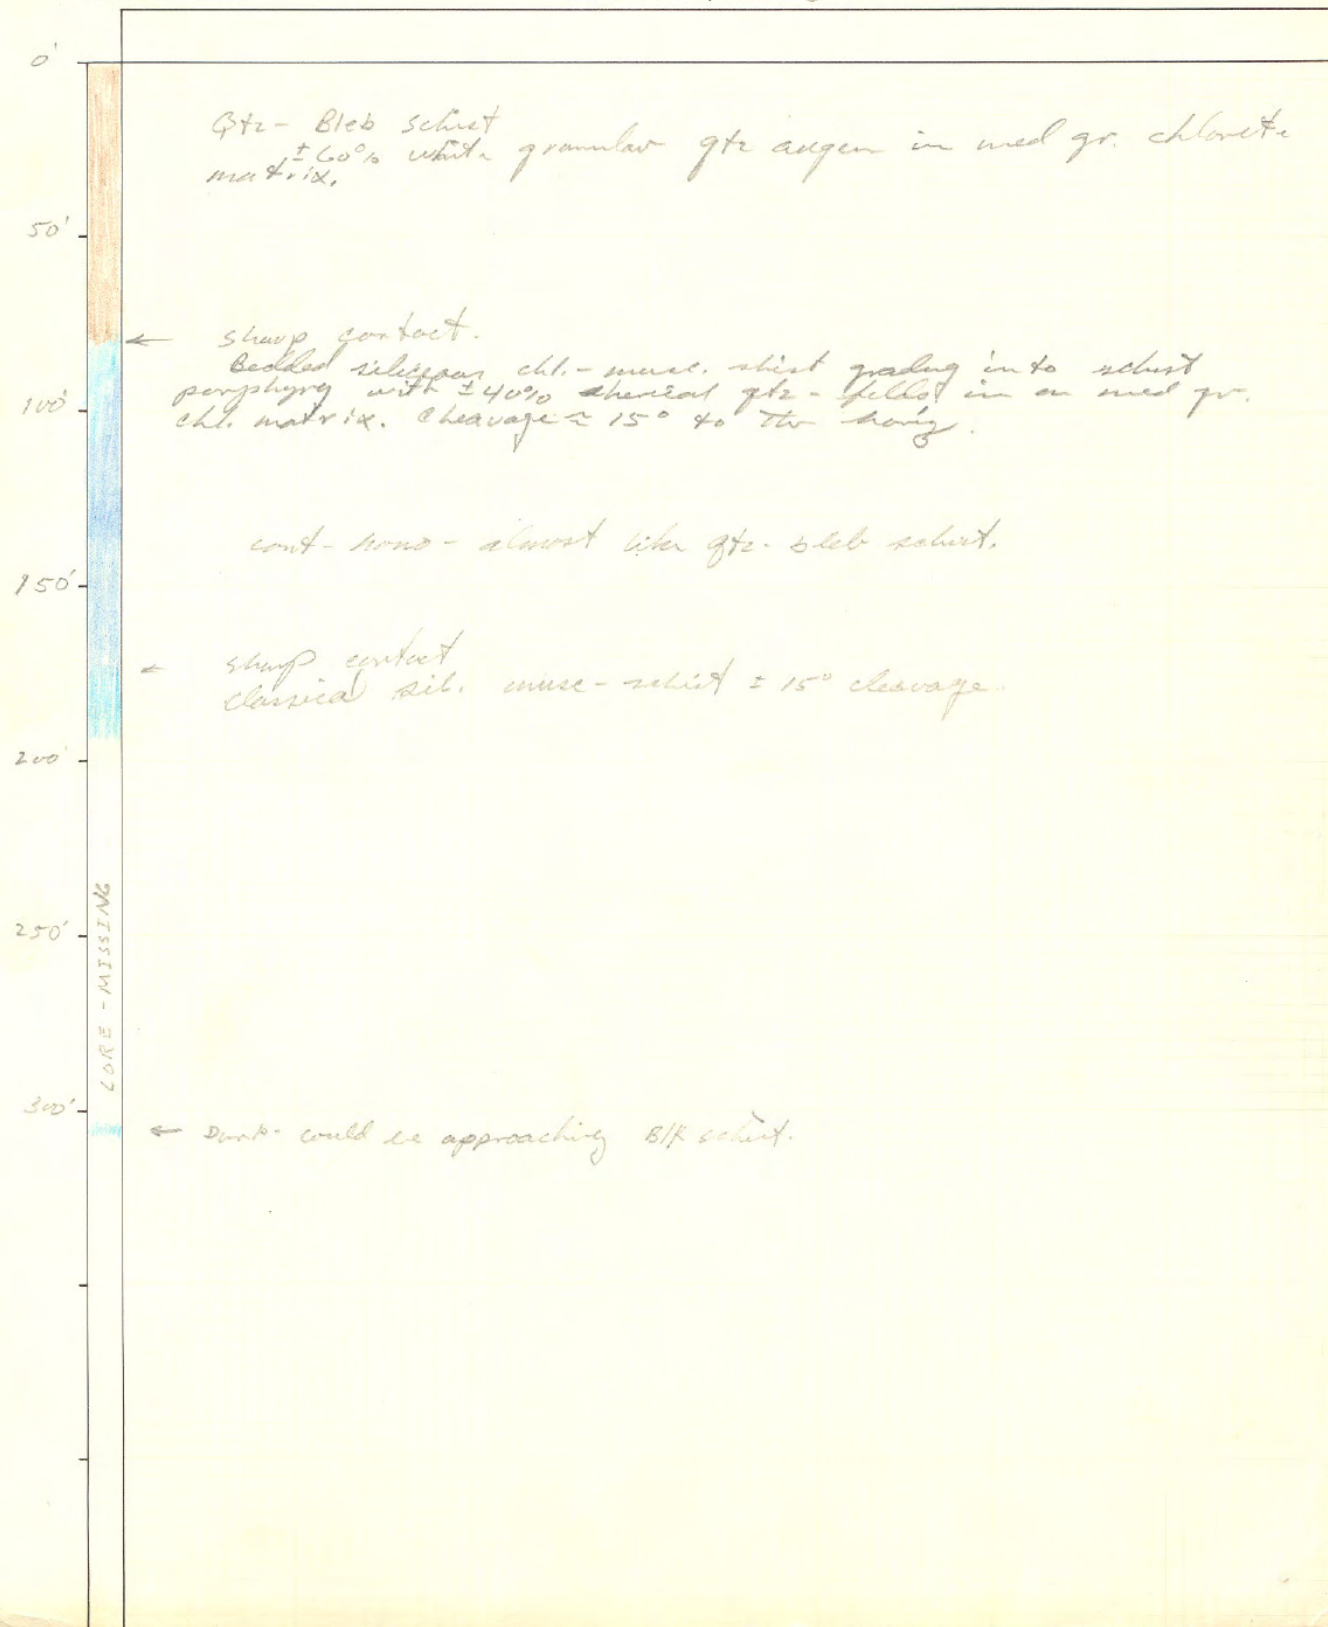 0'
Qtz - Bleb schist
± 60% white granular qtz augen in med gr. chlorite
matrix.
50'
← sharp contact.
Bedded siliceous chl. - musc. shist grading in to schist
100'
porphyry with ± 40% qtz - in an med gr.
chl. matrix. Cleavage ≈ 15° to the horiz.
cont - homo - almost like qtz - bleb schist.
150'
← sharp contact
classical sil. musc - schist ± 15° cleavage.
200'
250'
CORE - MISSING
300'
← Dark - could be approaching Blk schist.